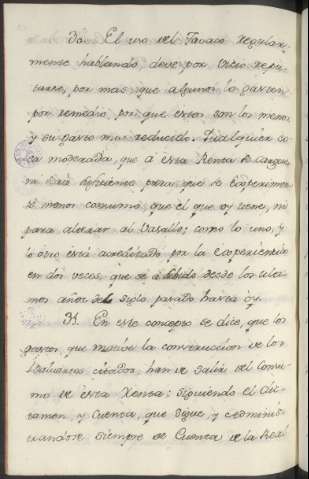 30. El uso del Tavaco regular,
mente hablando deve por Vicio repu-
tarse, por mas que algunos lo gasten
por remedio, por que estos son los menos
y su gasto mui reducido. Qualquier co
sa moderada, que á esta Renta se cargue,
ni será suficiente para que se experimen
te menor consumo que el que oy tiene, ni
para alterar al Vasallo; como lo uno, y
lo otro está acreditado por la Experiencia
en dos veces, que se á subido desde los ulti
mos años del siglo pasado hasta oy.
31. En este concepto se dice, que los
gastos que motive la construccion de los
citados, han de salir del Consu
mo de esta Renta: siguiendo el dic
tamen, y Cuenta, que sigue y administ
randose siempre de Cuenta de la Real